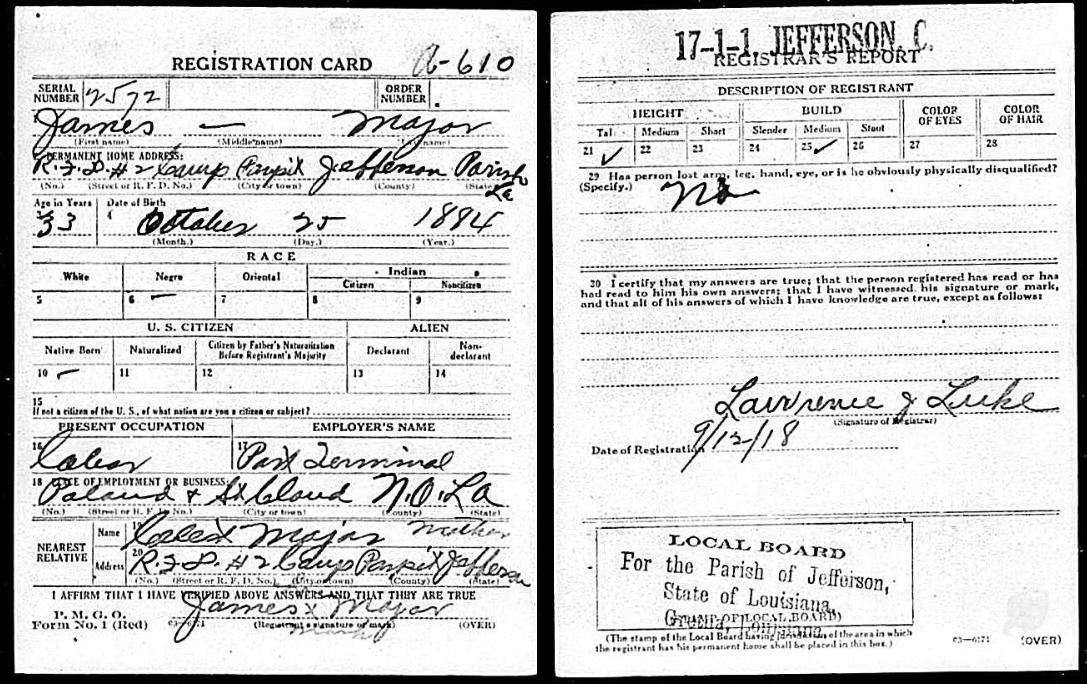 REGISTRATION CARD A-610
SERIAL NUMBER 2572 ORDER NUMBER
James — Major
(First name) (Middle name) (Last name)
PERMANENT HOME ADDRESS:
R.F.D. #2 Camp Parpit Jefferson Parish La
(No.) (Street or R. F. D. No.) (City or town) (County) (State)
Age in Years Date of Birth
33 October 25 1884
(Month.) (Day.) (Year.)
RACE
White Negro Oriental Indian
Citizen Noncitizen
5 6 – 7 8 9
U. S. CITIZEN ALIEN
Native Born Naturalized Citizen by Father's Naturalization Before Registrant's Majority Declarant Non-declarant
10 – 11 12 13 14
15
If not a citizen of the U. S., of what nation are you a citizen or subject?
PRESENT OCCUPATION EMPLOYER'S NAME
16 Labor 17 Port Terminal
18 PLACE OF EMPLOYMENT OR BUSINESS:
Poland & St Claud N.O. La
(No.) (Street or R. F. D. No.) (City or town) (County) (State)
NEAREST RELATIVE
Name 19 Major Mother
Address 20 R.F.D. #2 Camp Parpit Jefferson
(No.) (Street or R. F. D. No.) (City or town) (County) (State)
I AFFIRM THAT I HAVE VERIFIED ABOVE ANSWERS AND THAT THEY ARE TRUE
P. M. G. O.
Form No. 1 (Red) 03—6171 James x Major
(Registrant's signature or mark) (OVER)
Mark
17-1-1, JEFFERSON, C.
REGISTRAR'S REPORT
DESCRIPTION OF REGISTRANT
HEIGHT BUILD COLOR OF EYES COLOR OF HAIR
Tall Medium Short Slender Medium Stout
21 ✓ 22 23 24 25 ✓ 26 27 28
29 Has person lost arm, leg, hand, eye, or is he obviously physically disqualified?
(Specify.) No
30 I certify that my answers are true; that the person registered has read or has
had read to him his own answers; that I have witnessed his signature or mark,
and that all of his answers of which I have knowledge are true, except as follows:
Lawrence J Luke
(Signature of Registrar)
Date of Registration 9/12/18
LOCAL BOARD
For the Parish of Jefferson,
State of Louisiana,
Gretna, Louisiana
(STAMP OF LOCAL BOARD)
(The stamp of the Local Board having jurisdiction of the area in which
the registrant has his permanent home shall be placed in this box.)
03—6171 (OVER)